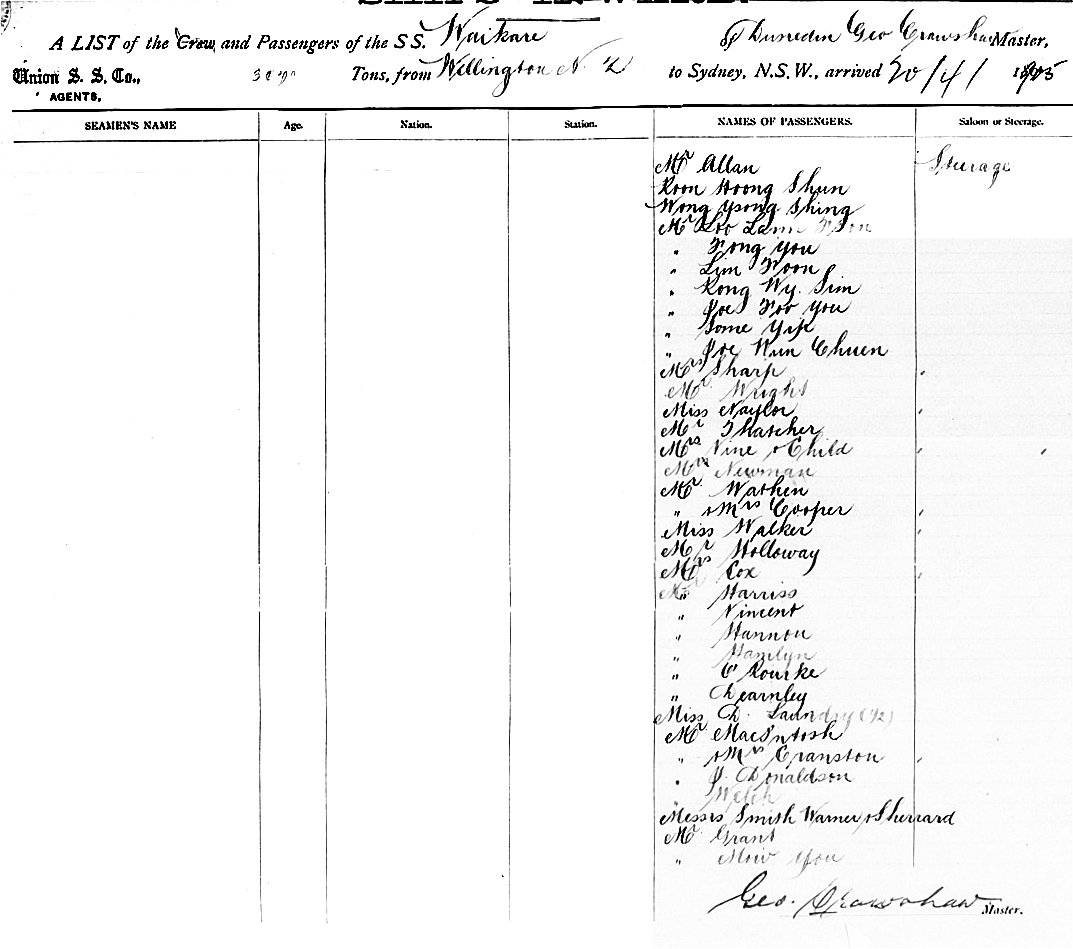 A LIST of the Crew and Passengers of the S.S. Waikare of Dunedin Geo Crawshaw Master,
Union S. S. Co., Tons, from Wellington N. Z to Sydney, N.S.W., arrived 20/4/ 1905
AGENTS,
SEAMEN'S NAME Age. Nation. Station. NAMES OF PASSENGERS. Saloon or Steerage.
Mr Allan Steerage
Koon Hoong Shun
Wong Ysong Shing
Mr Loo Lann
" Fong You
" Lim Foon
" Kong Wy. Sim
" Joe Foo You
" Some Yik
" Joe Wun Chuen
Mrs Sharp "
Mr Wright
Miss Naylor "
Mr Thatcher
Mrs Vine & Child "
Mr Newman
Mr Wathen
" & Mrs Cooper "
Miss Walker "
Mr Holloway
Mrs Cox "
Mr Harriss
" Vincent
" Hannon
" Hamlyn
" O'Rourke
" Dearnley
Miss D. Laundry (1/2)
Mr MacIntosh
" & Mrs Cranston "
" J. Donaldson
" Welch
Messrs Smith Warner & Sherrard
Mr Grant
" Mow You
Geo. Crawshaw Master.